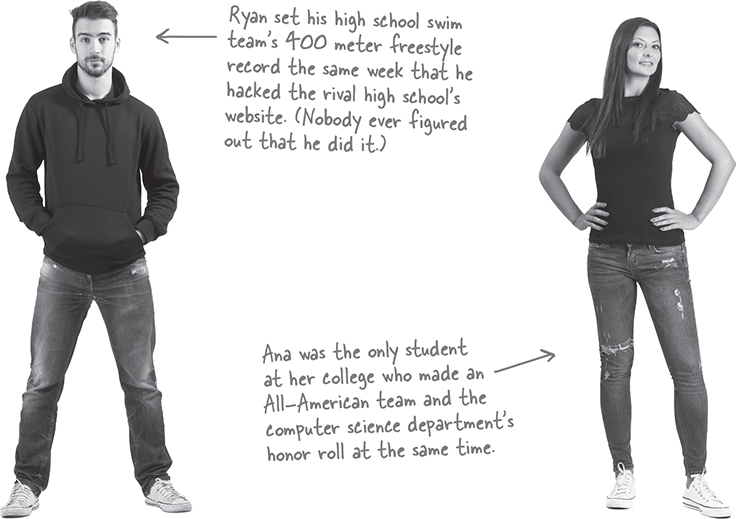 Ryan set his high school swim
team's 400 meter freestyle
record the same week that he
hacked the rival high school's
website. (Nobody ever figured
out that he did it.)
Ana was the only student
at her college who made an
All-American team and the
computer science department's
honor roll at the same time.